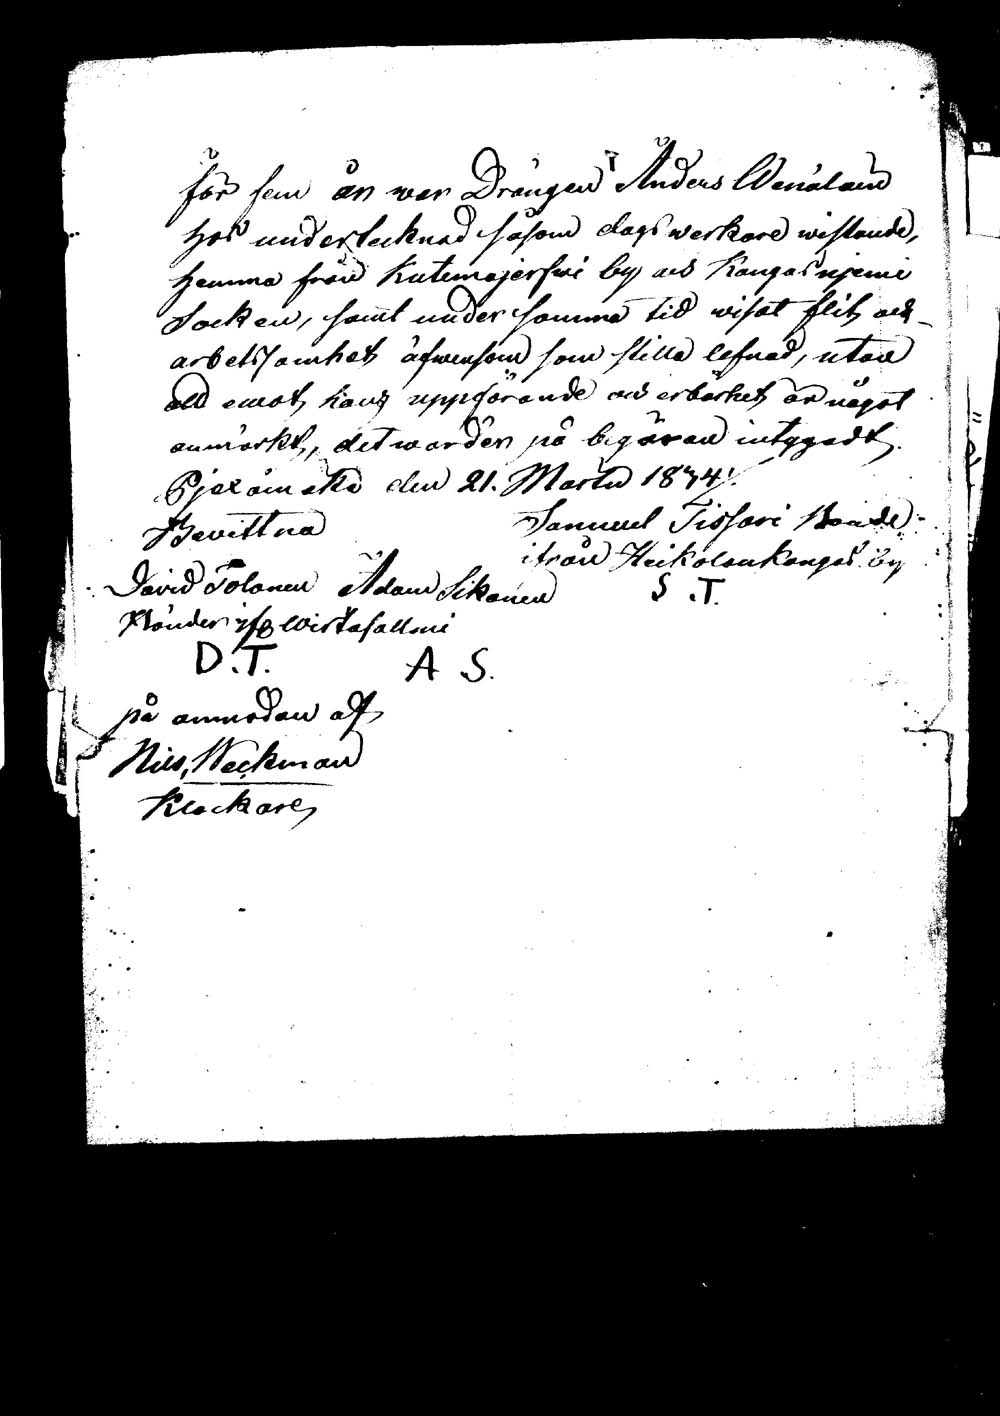 för fem år war Drängen Anders Wenäläin
hos undertecknad såsom dagswerkare wistande,
hemma från Kutemajerfwi by och Kangasnjemi
Socken, samt under samma tid wisat flit och
arbetsamhet äfwensom som stilla lefnad, utan
att emot hans uppförande och erbarhet är något
anmärkt, det warder på begäran intygadt.
Pjexämäki den 21. Martii 1834.
Bevittna
Samuel Tissari Bonde
ifrån Heikolankangas by
David Tolonen Adam Sikanen
S. T.
Bönder ifrå Wirtasallmi
D. T. A S.
på anmodan af
Nils Weckman
Klockare